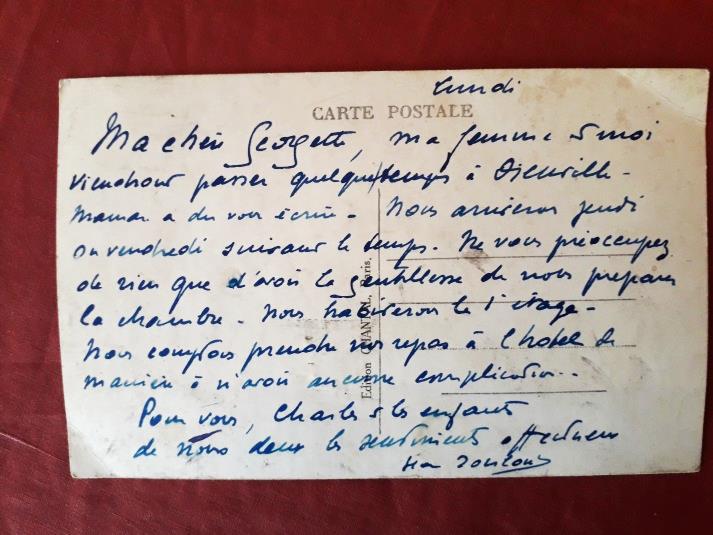 lundi
CARTE POSTALE
Ma chère Georgette, ma femme & moi
viendront passer quelque temps à Dienville -
Maman a du vous écrire - Nous arriverons jeudi
ou vendredi suivant le temps. Ne vous préoccupez
de rien que d'avoir la gentillesse de nous préparer
la chambre - Nous habiterons le 1er étage -
Nous comptons prendre nos repas à l'hotel de
manière à n'avoir aucune complication -
Pour vous, Charles & les enfants
de nous deux les sentiments affectueux
Edition CHANTAL, Paris.